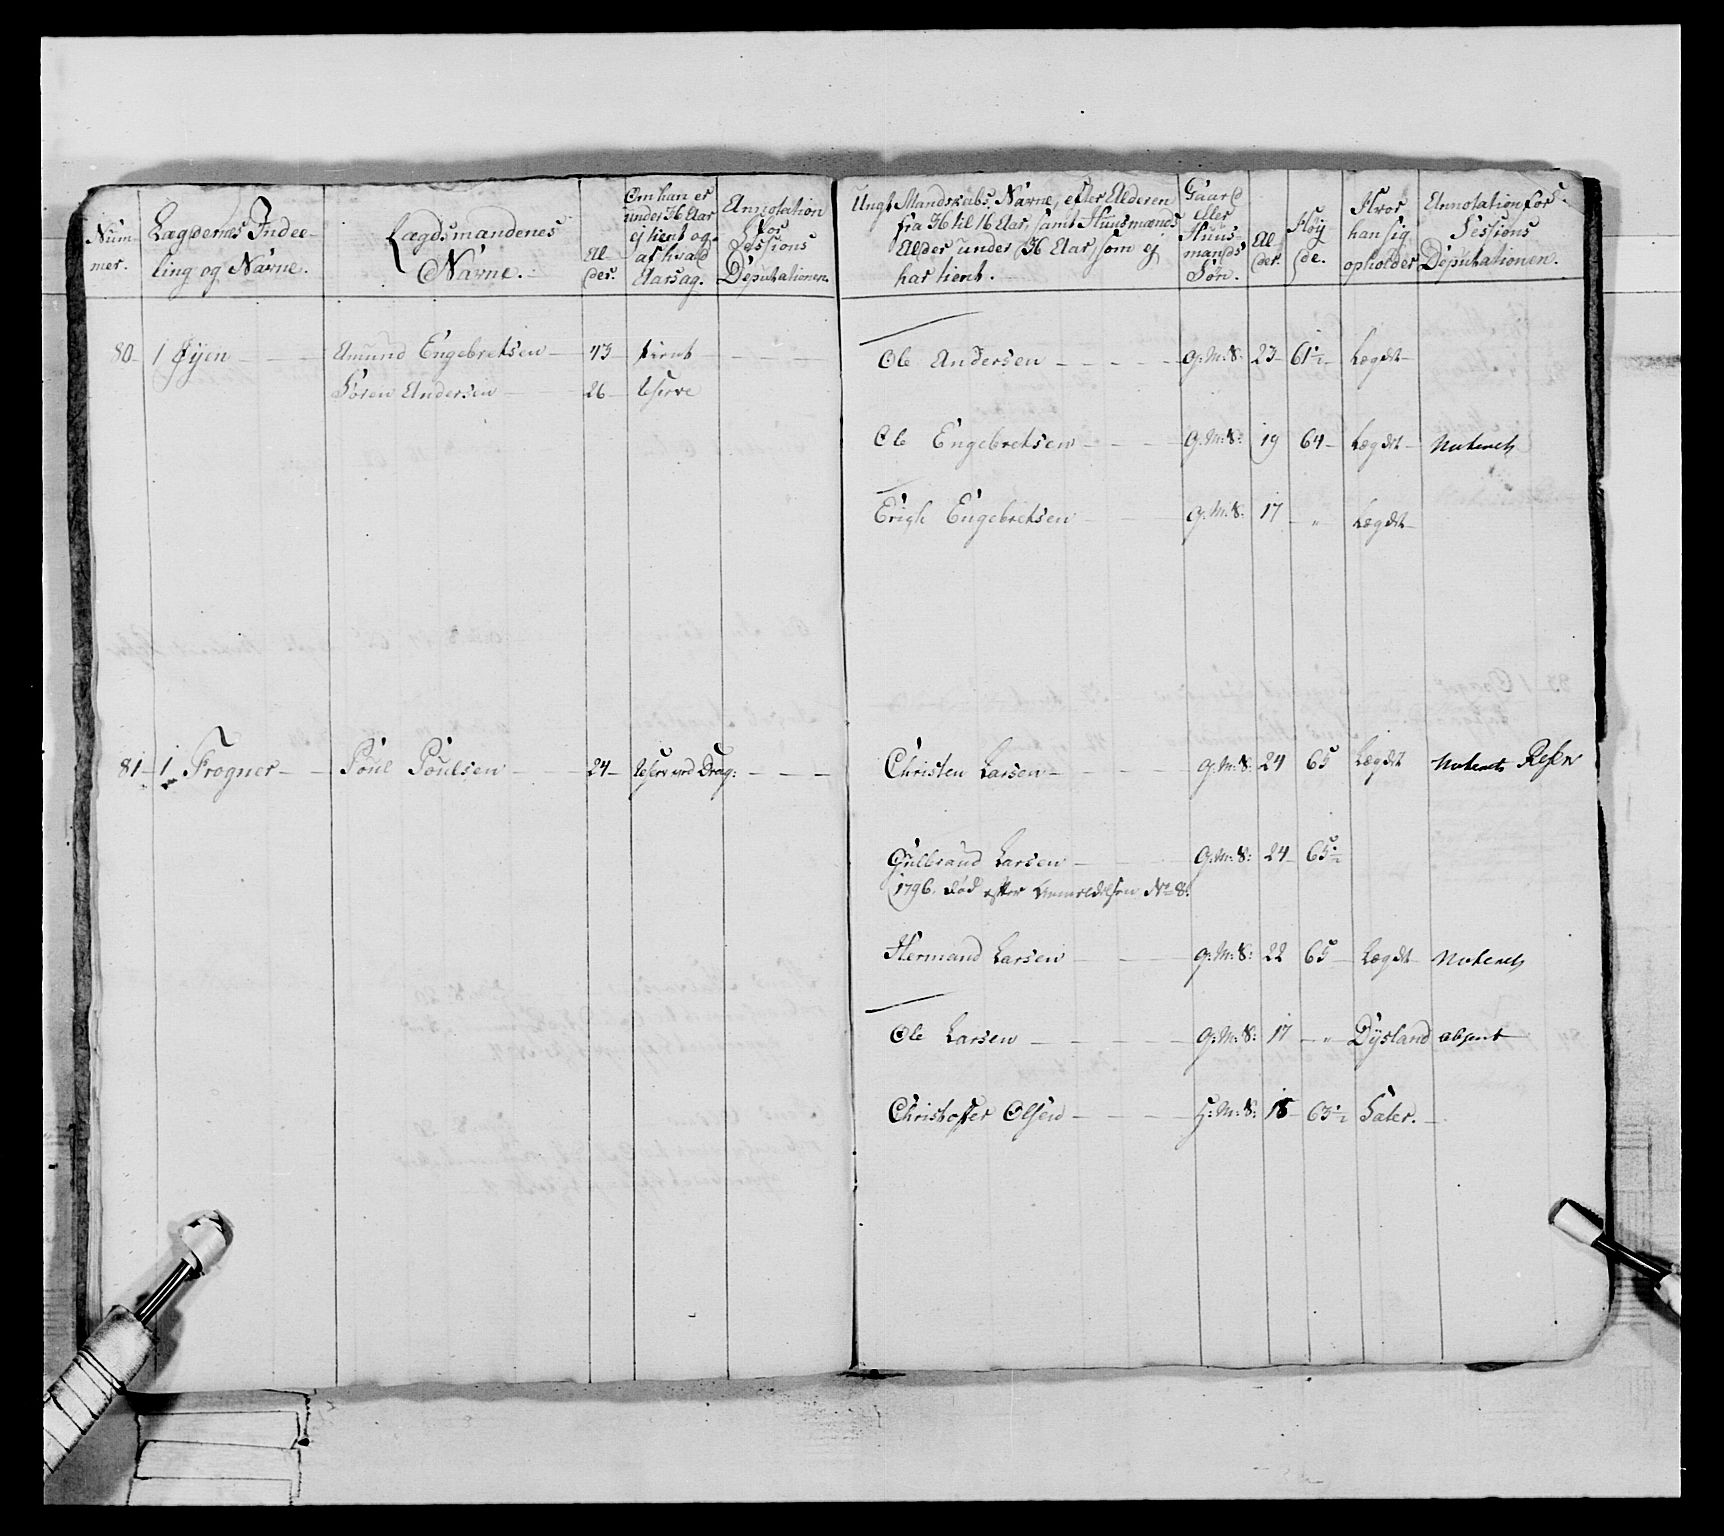 Num-
mer.
Lægdernes Indee-
ling og Navne.
Lægdsmandenes
Navne.
Al-
der.
Om han er
under 36 Aar
ej tient og
af hvad
Aarsag.
Annotation
for
Sessions
Deputationen.
Ungt Mandskabs Navne, efter Alderen
fra 36 til 16 Aar, samt Huusmænds
Alder under 36 Aar, som ej
har tient.
Gaard
eller
Huus-
mands
Søn.
Al-
der.
Høy-
de.
Hvor
han sig
opholder
Annotation for
Sessions
Deputationen.
80 - 1 Øyen - - - Amund Engebretsen - 43 - tient - - - Ole Andersen - - - - G:M:S: 23 - 61½ - Lægdet -
Søren Andersen - - 26 -
Ole Engebretsen - - - G:M:S: 19 64 - Lægdet - Noteret
Erich Engebretsen - - G:M:S: 17 - " - Lægdet -
81 - 1 Frogner - - Poul Poulsen - - - 24 - ved Drag: - - - Christen Larsen - - - G:M:S: 24 65 Lægdet Noteret Reserv
Gulbrand Larsen - - - G:M:S: 24 - 65½
1796. død efter Anmeldelsen No 8.
Hermand Larsen - - - G:M:S: 22 65 - Lægdet - Noteret
Ole Larsen - - - - G:M:S: 17 - " Dysland absent
Christoffer Olsen - - - H:M:S: 18 - 63½ Sater. -